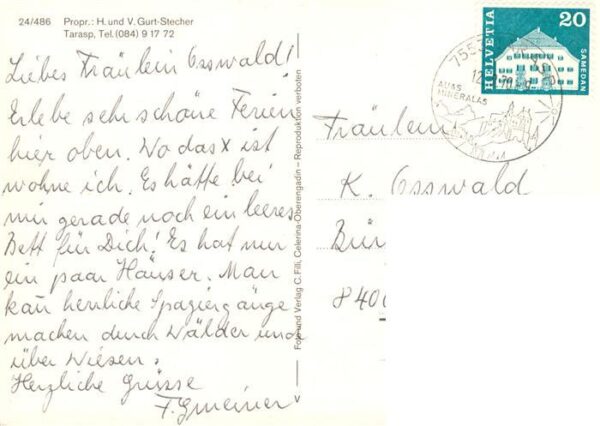 24/486 Propr.: H. und V. Gurt-Stecher
Tarasp, Tel. (084) 9 17 72
Liebes Fräulein Osswald!
Erlebe sehr schöne Ferien
hier oben. Wo das X ist
wohne ich. Es hätte bei
mir gerade noch ein leeres
Bett für Dich! Es hat nur
ein paar Häuser. Man
kan herrliche Spaziergänge
machen durch Wälder und
über Wiesen.
Herzliche Grüsse
F. Gmeiner
Foto und Verlag C. Filli, Celerina-Oberengadin – Reproduktion verboten
HELVETIA
20
SAMEDAN
755
AUAS
MINERALAS
Fräulein
K. Osswald
Bün
8400